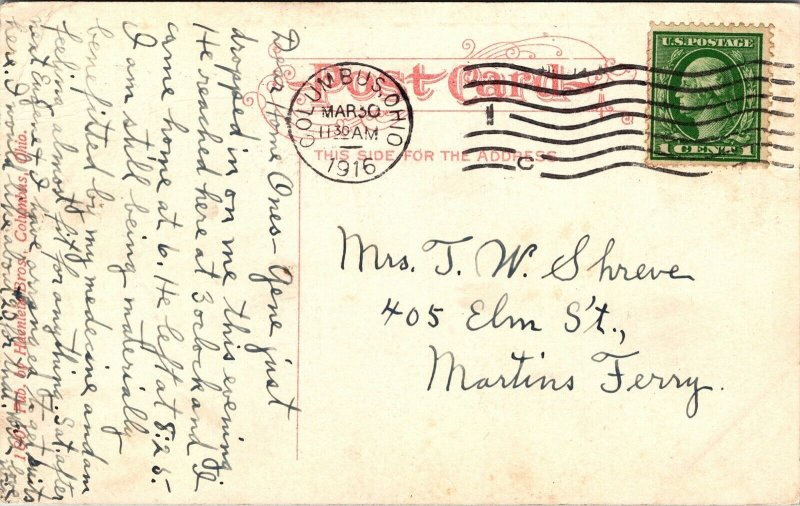 Post Card
THIS SIDE FOR THE ADDRESS
COLUMBUS, OHIO
MAR 30
11 30 AM
1916
1
C
U.S. POSTAGE
1 CENT 1
Mrs. T. W. Shreve
405 Elm St.,
Martins Ferry.
Dear Home Ones- Gene just
dropped in on me this evening.
He reached here at 3 oclock and I
came home at 6. He left at 8:25.
I am still being materially
benefitted by my medicine and am
feeling almost fit for anything. Sat. after
next Eugene & I have arranged to get suits
here. I would like about
Pub. by Haenlein Bros., Columbus, Ohio.